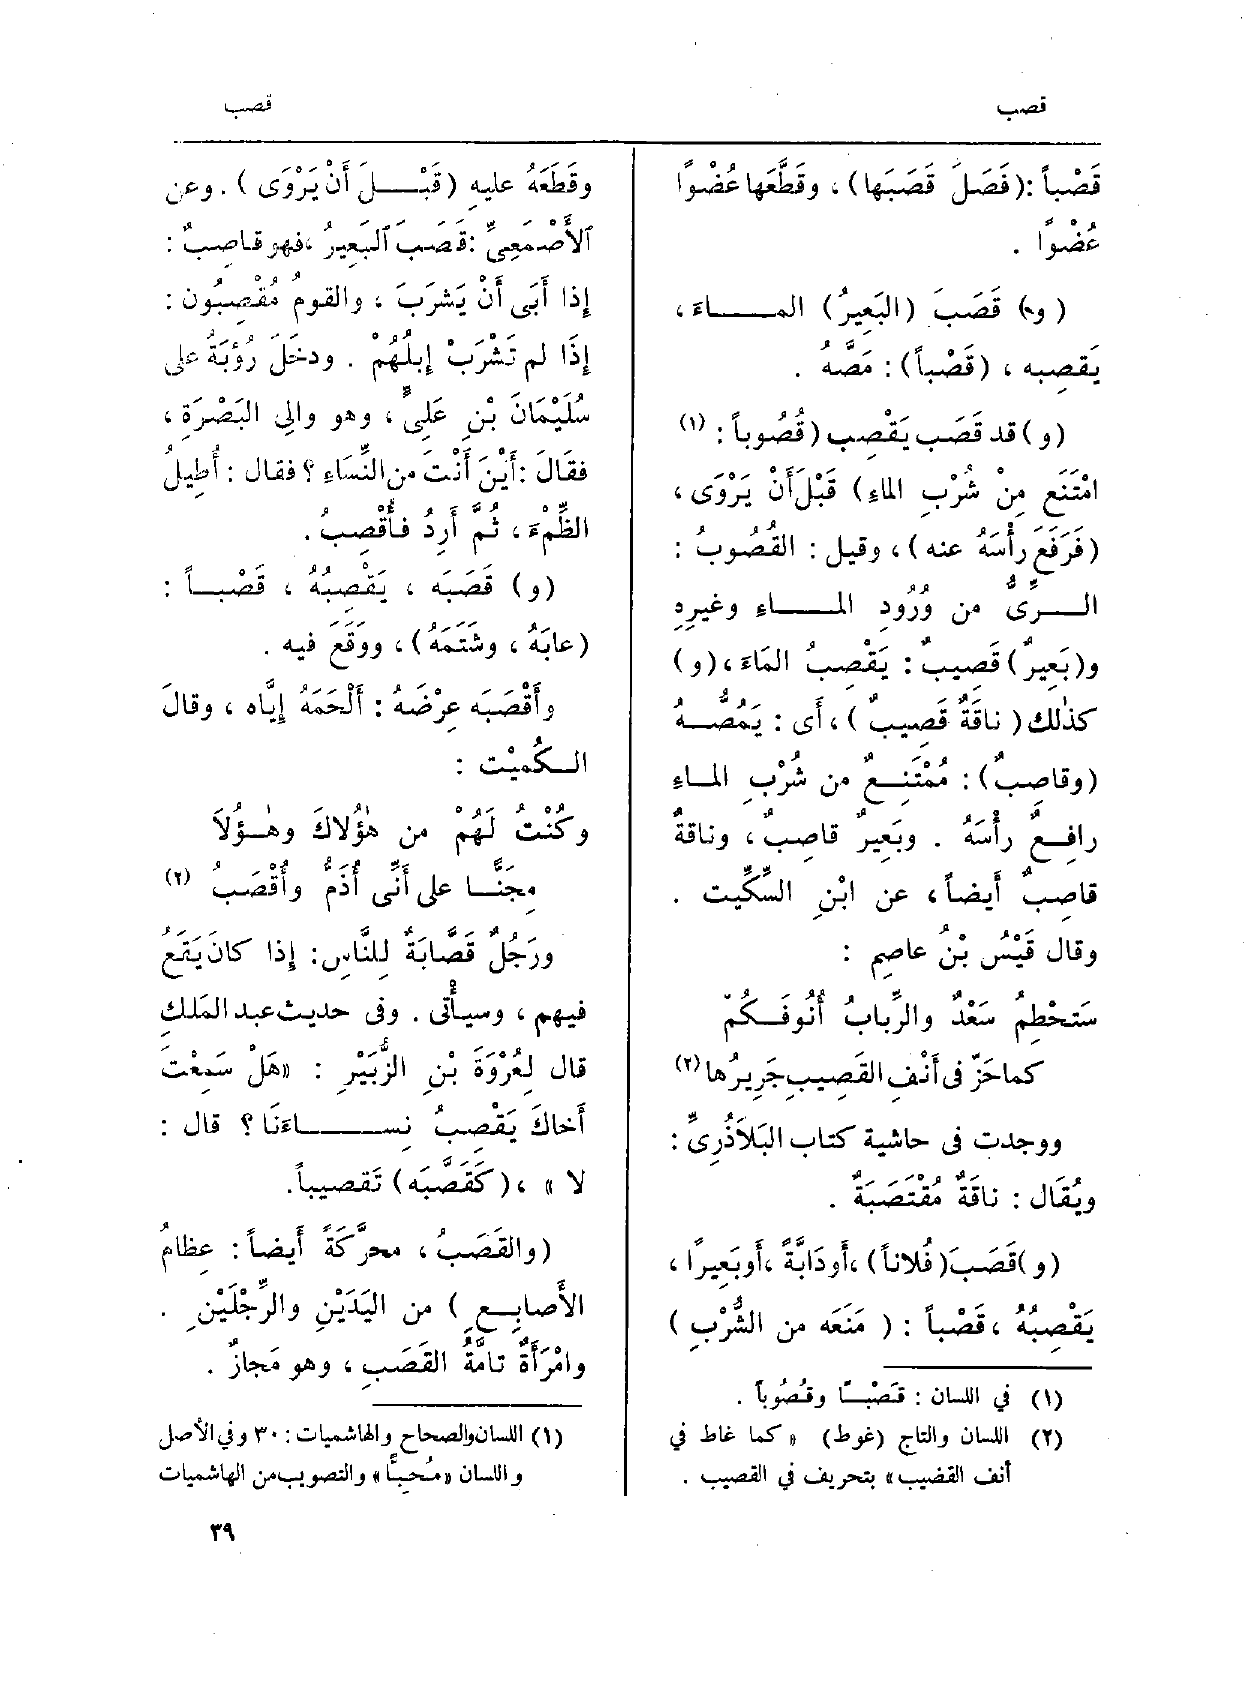 قصب
قصب
قَصْباً : (فَصَلَ قَصَبَها) ، وقَطَّعها عُضْوًا
عُضْوًا .
( و) قَصَبَ (البَعِيرُ) المـاءَ ،
يَقصِبه ، (قَصْباً) : مَصَّهُ .
(و) قد قَصَب يَقْصِب (قُصُوباً : (١)
امْتَنَع مِنْ شُرْبِ الماءِ) قَبْلَ أَنْ يَرْوَى ،
(فَرَفَعَ رأْسَهُ عنه) ، وقيل : القُصُوبُ :
الـرِّىُّ من وُرُودِ المـاءِ وغيرِهِ
و(بَعِيرٌ) قَصِيبٌ : يَقْصِبُ المَاءَ ، (و)
كذٰلك ( ناقَةٌ قَصِيبٌ ) ، أَى : يَمُصُّـهُ
(وقاصِبٌ) : مُمْتَنِـعٌ من شُرْبِ المـاءِ
رافِـعٌ رأْسَهُ . وبَعِيرٌ قاصِبٌ ، وناقةٌ
قاصِبٌ أَيضاً ، عن ابْنِ السِّكِّيت .
وقال قَيْسُ بْنُ عاصِمٍ :
سَتَحْطِمُ سَعْدٌ والرِّبابُ أُنُوفَـكُمْ
كما حَزَّ فى أَنْفِ القَصِيبِ جَرِيرُها (٢)
ووجدت فى حاشية كتاب البَلاَذُرِىِّ :
ويُقال : ناقَةٌ مُقْتَصَبَةٌ .
(و) قَصَبَ (فُلاناً) ، أَو دَابَّةً ، أَو بَعِيرًا ،
يَقْصِبُهُ ، قَصْباً : ( مَنَعَه من الشُّرْبِ )
(١) في اللسان : قَصْبًا وقُصُوباً .
(٢) اللسان والتاج (غوط) « كما غاط في
أنف القضيب » بتحريف في القصيب .
وقَطَعَهُ عليهِ (قَبْـلَ أَنْ يَرْوَى ) . وعن
الأَصْمَعِىِّ : قَصَبَ البَعِيرُ ، فهو قاصِبٌ :
إِذا أَبَى أَنْ يَشرَبَ ، والقومُ مُقْصِبُون :
إِذَا لم تَشْرَبْ إِبِلُهُمْ . ودخَلَ رُؤبَةُ على
سُلَيْمَانَ بْنِ عَلِىٍّ ، وهو والِى البَصْرَةِ ،
فقَالَ : أَيْنَ أَنْتَ من النِّسَاءِ ؟ فقال : أُطِيلُ
الظِّمْءَ ، ثُمَّ أَرِدُ فأُقْصِبُ .
(و) قَصَبَه ، يَقْصِبُهُ ، قَصْبـاً :
(عابَهُ ، وشَتَمَهُ) ، ووَقَعَ فيه .
وأَقْصَبَه عِرْضَهُ : أَلْحَمَهُ إِيَّاه ، وقالَ
الـكُمَيْت :
وكُنْتُ لَهُمْ من هٰؤُلاكَ وهٰـؤُلاَ
مِجَنًّـا على أَنِّى أُذَمُّ وأُقْصَبُ (٢)
ورَجُلٌ قَصَّابَةٌ لِلنَّاسِ : إِذا كانَ يَقَعُ
فيهِم ، وسيأْتى . وفى حديث عبد المَلك
قال لِعُرْوَةَ بْنِ الزُّبَيْرِ : «هَلْ سَمِعْتَ
أَخاكَ يَقْصِبُ نِسـاءَنَا ؟ قال :
لا » ، (كَقَصَّبَه) تَقصِيباً .
(والقَصَبُ ، محرَّكَةً أَيضاً : عِظامُ
الأَصابِـعِ ) من اليَدَيْنِ والرِّجْلَيْنِ .
وامْرَأَةٌ تامَّةُ القَصَبِ ، وهو مَجازٌ .
(١) اللسان والصحاح والهاشميات : ٣٠ وفي الأصل
واللسان «مُحِبًّا» والتصويب من الهاشميات
٣٩